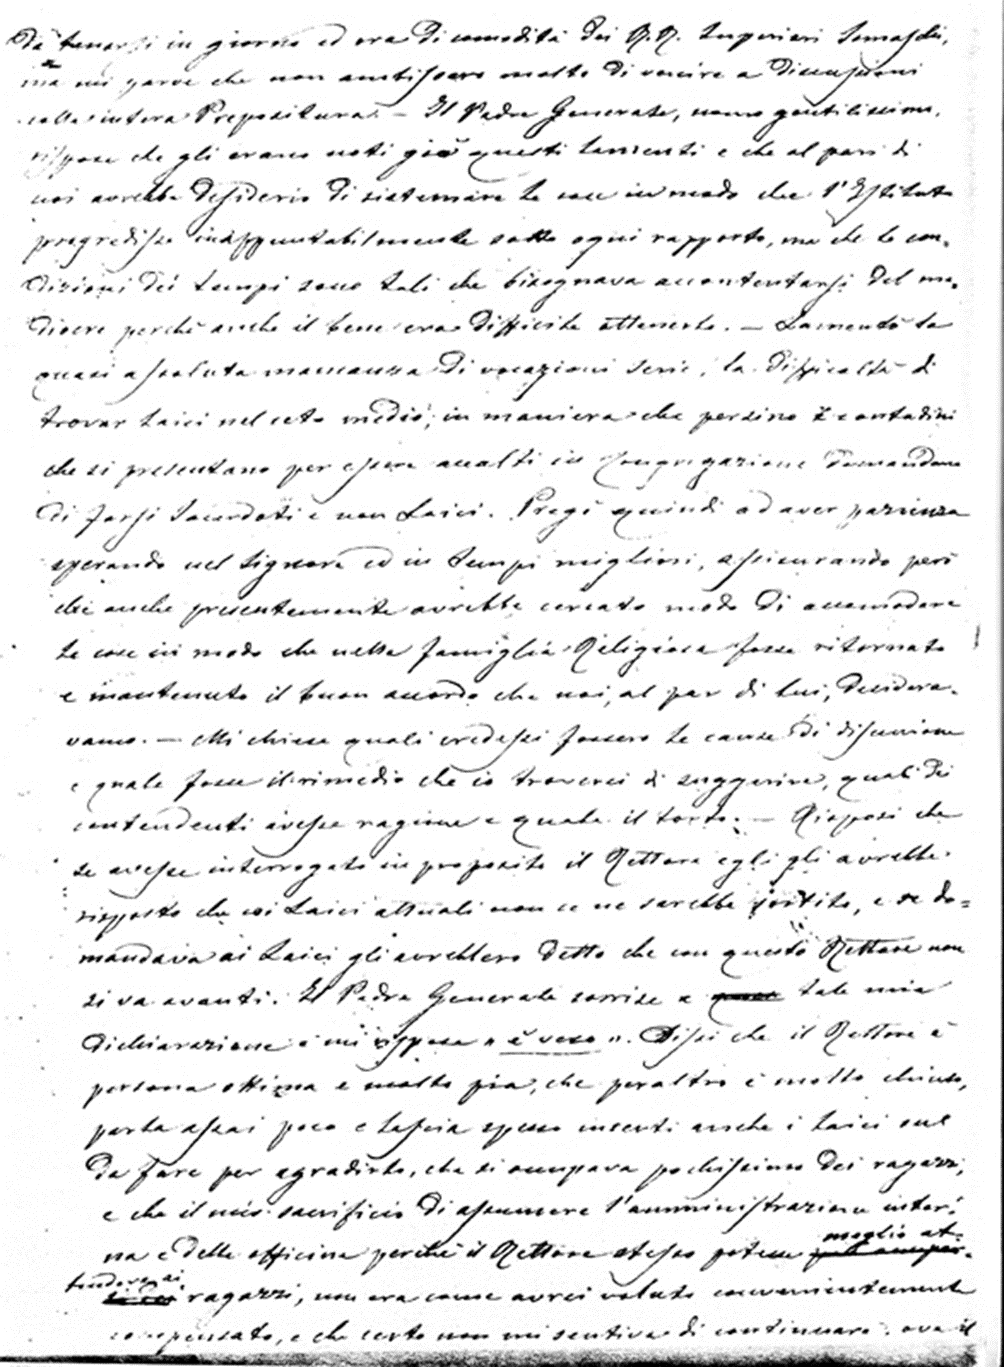 da tenersi in giorno ed ora di comodità dei R.R. Superiori Somaschi,
ma mi parve che non amassero molto di venire a discussioni
colla intera Prepositura. – Il Padre Generale, uomo gentilissimo,
rispose che gli erano noti già questi lamenti e che al pari di
noi avrebbe desiderio di sistemare le cose in modo che l'Istituto
progredisse inappuntabilmente sotto ogni rapporto, ma che le con-
dizioni dei tempi sono tali che bisognava accontentarsi del me-
diocre perchè anche il bene era difficile ottenerlo. – Lamentò la
quasi assoluta mancanza di vocazioni serie, la difficoltà di
trovar Laici nel ceto medio, in maniera che persino i contadini
che si presentano per essere accolti in Congregazione domandano
di farsi Sacerdoti e non Laici. Pregò quindi ad aver pazienza
sperando nel Signore ed in tempi migliori, assicurando però
che anche presentemente avrebbe cercato modo di accomodare
le cose in modo che nella famiglia Religiosa fosse ritornato
e mantenuto il buon accordo che noi, al par di lui, desidera-
vamo. – Mi chiese quali credessi fossero le cause di disunione
e quale fosse il rimedio che io troverei di suggerire, quali dei
contendenti avesse ragione e quale il torto. – Risposi che
se avesse interrogato in proposito il Rettore egli gli avrebbe
risposto che coi Laici attuali non ce ne sarebbe partito, e se do=
mandava ai Laici gli avrebbero detto che con questo Rettore non
si va avanti. Il Padre Generale sorrise a tale mia
dichiarazione e mi rispose « è vero ». Dissi che il Rettore è
persona ottima e molto pia, che peraltro è molto chiuso,
parla assai poco e lascia spesso incerti anche i Laici sul
da fare per aggradirlo, che si occupava pochissimo dei ragazzi,
e che il mio sacrificio di assumere l'amministrazione inter-
na e delle officine perchè il Rettore stesso potesse meglio at-
tendere ai ragazzi, non era come avrei voluto convenientemente
compensato, e che certo non mi sentiva di continuare ove il